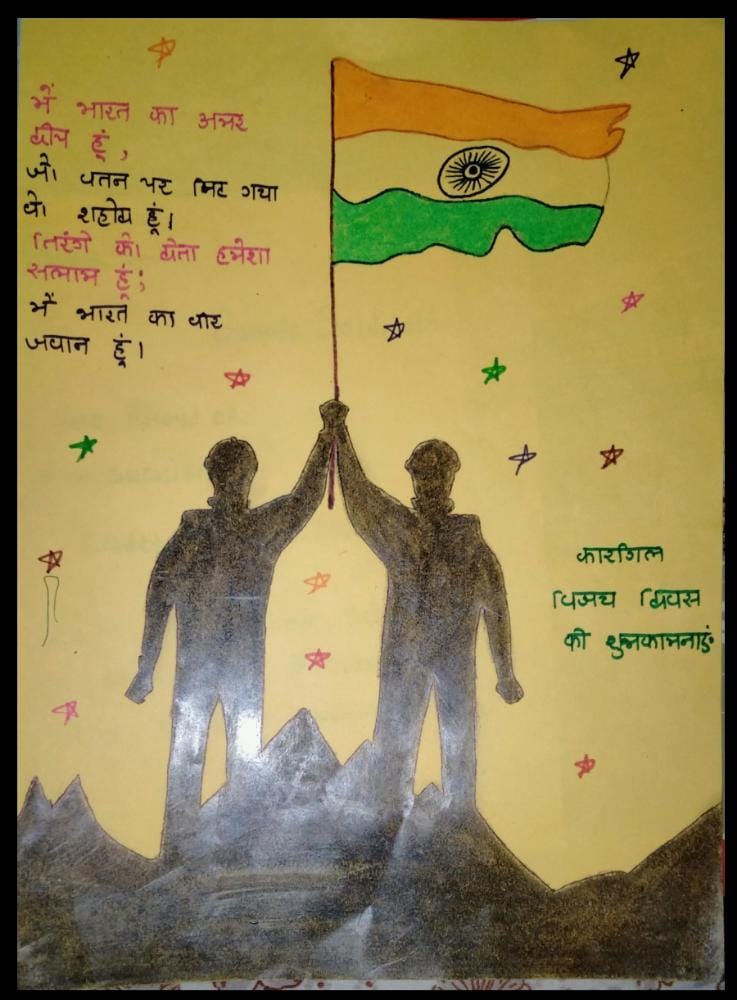 मैं भारत का अमर
दीप हूं,
जो वतन पर मिट गया
वो शहीद हूं।
तिरंगे को देता हमेशा
सलाम हूं;
मैं भारत का वीर
जवान हूं।
कारगिल
विजय दिवस
की शुभकामनाएं